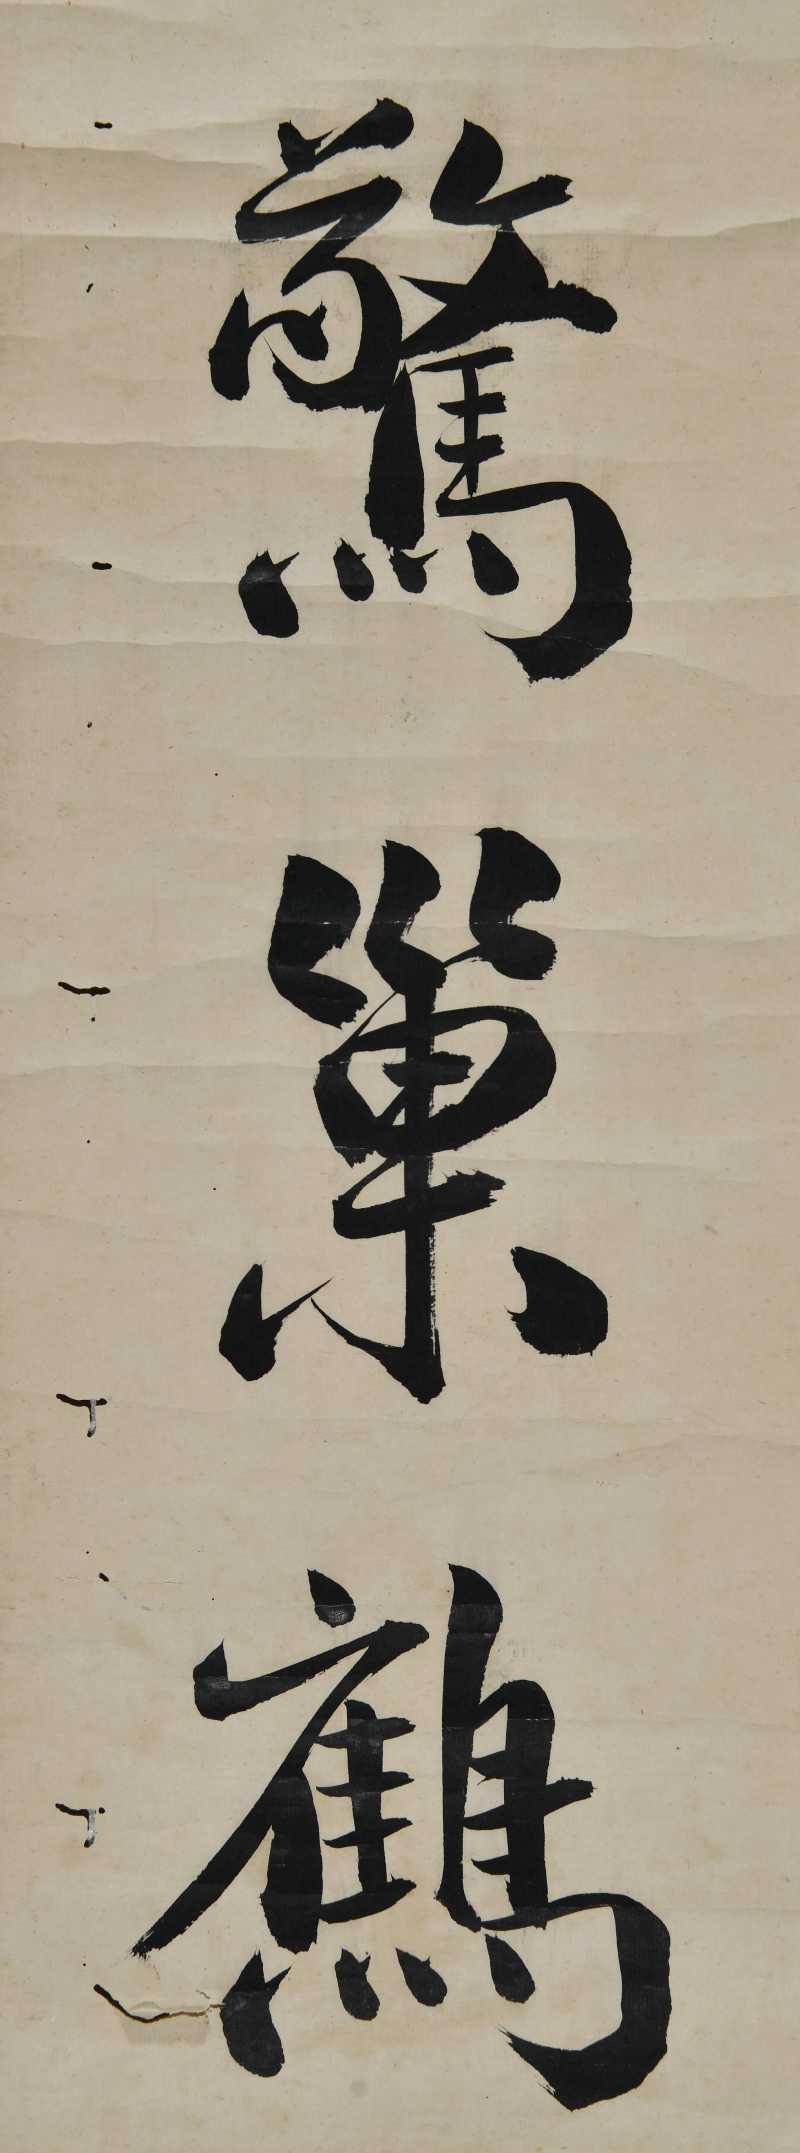 驚巢鶴